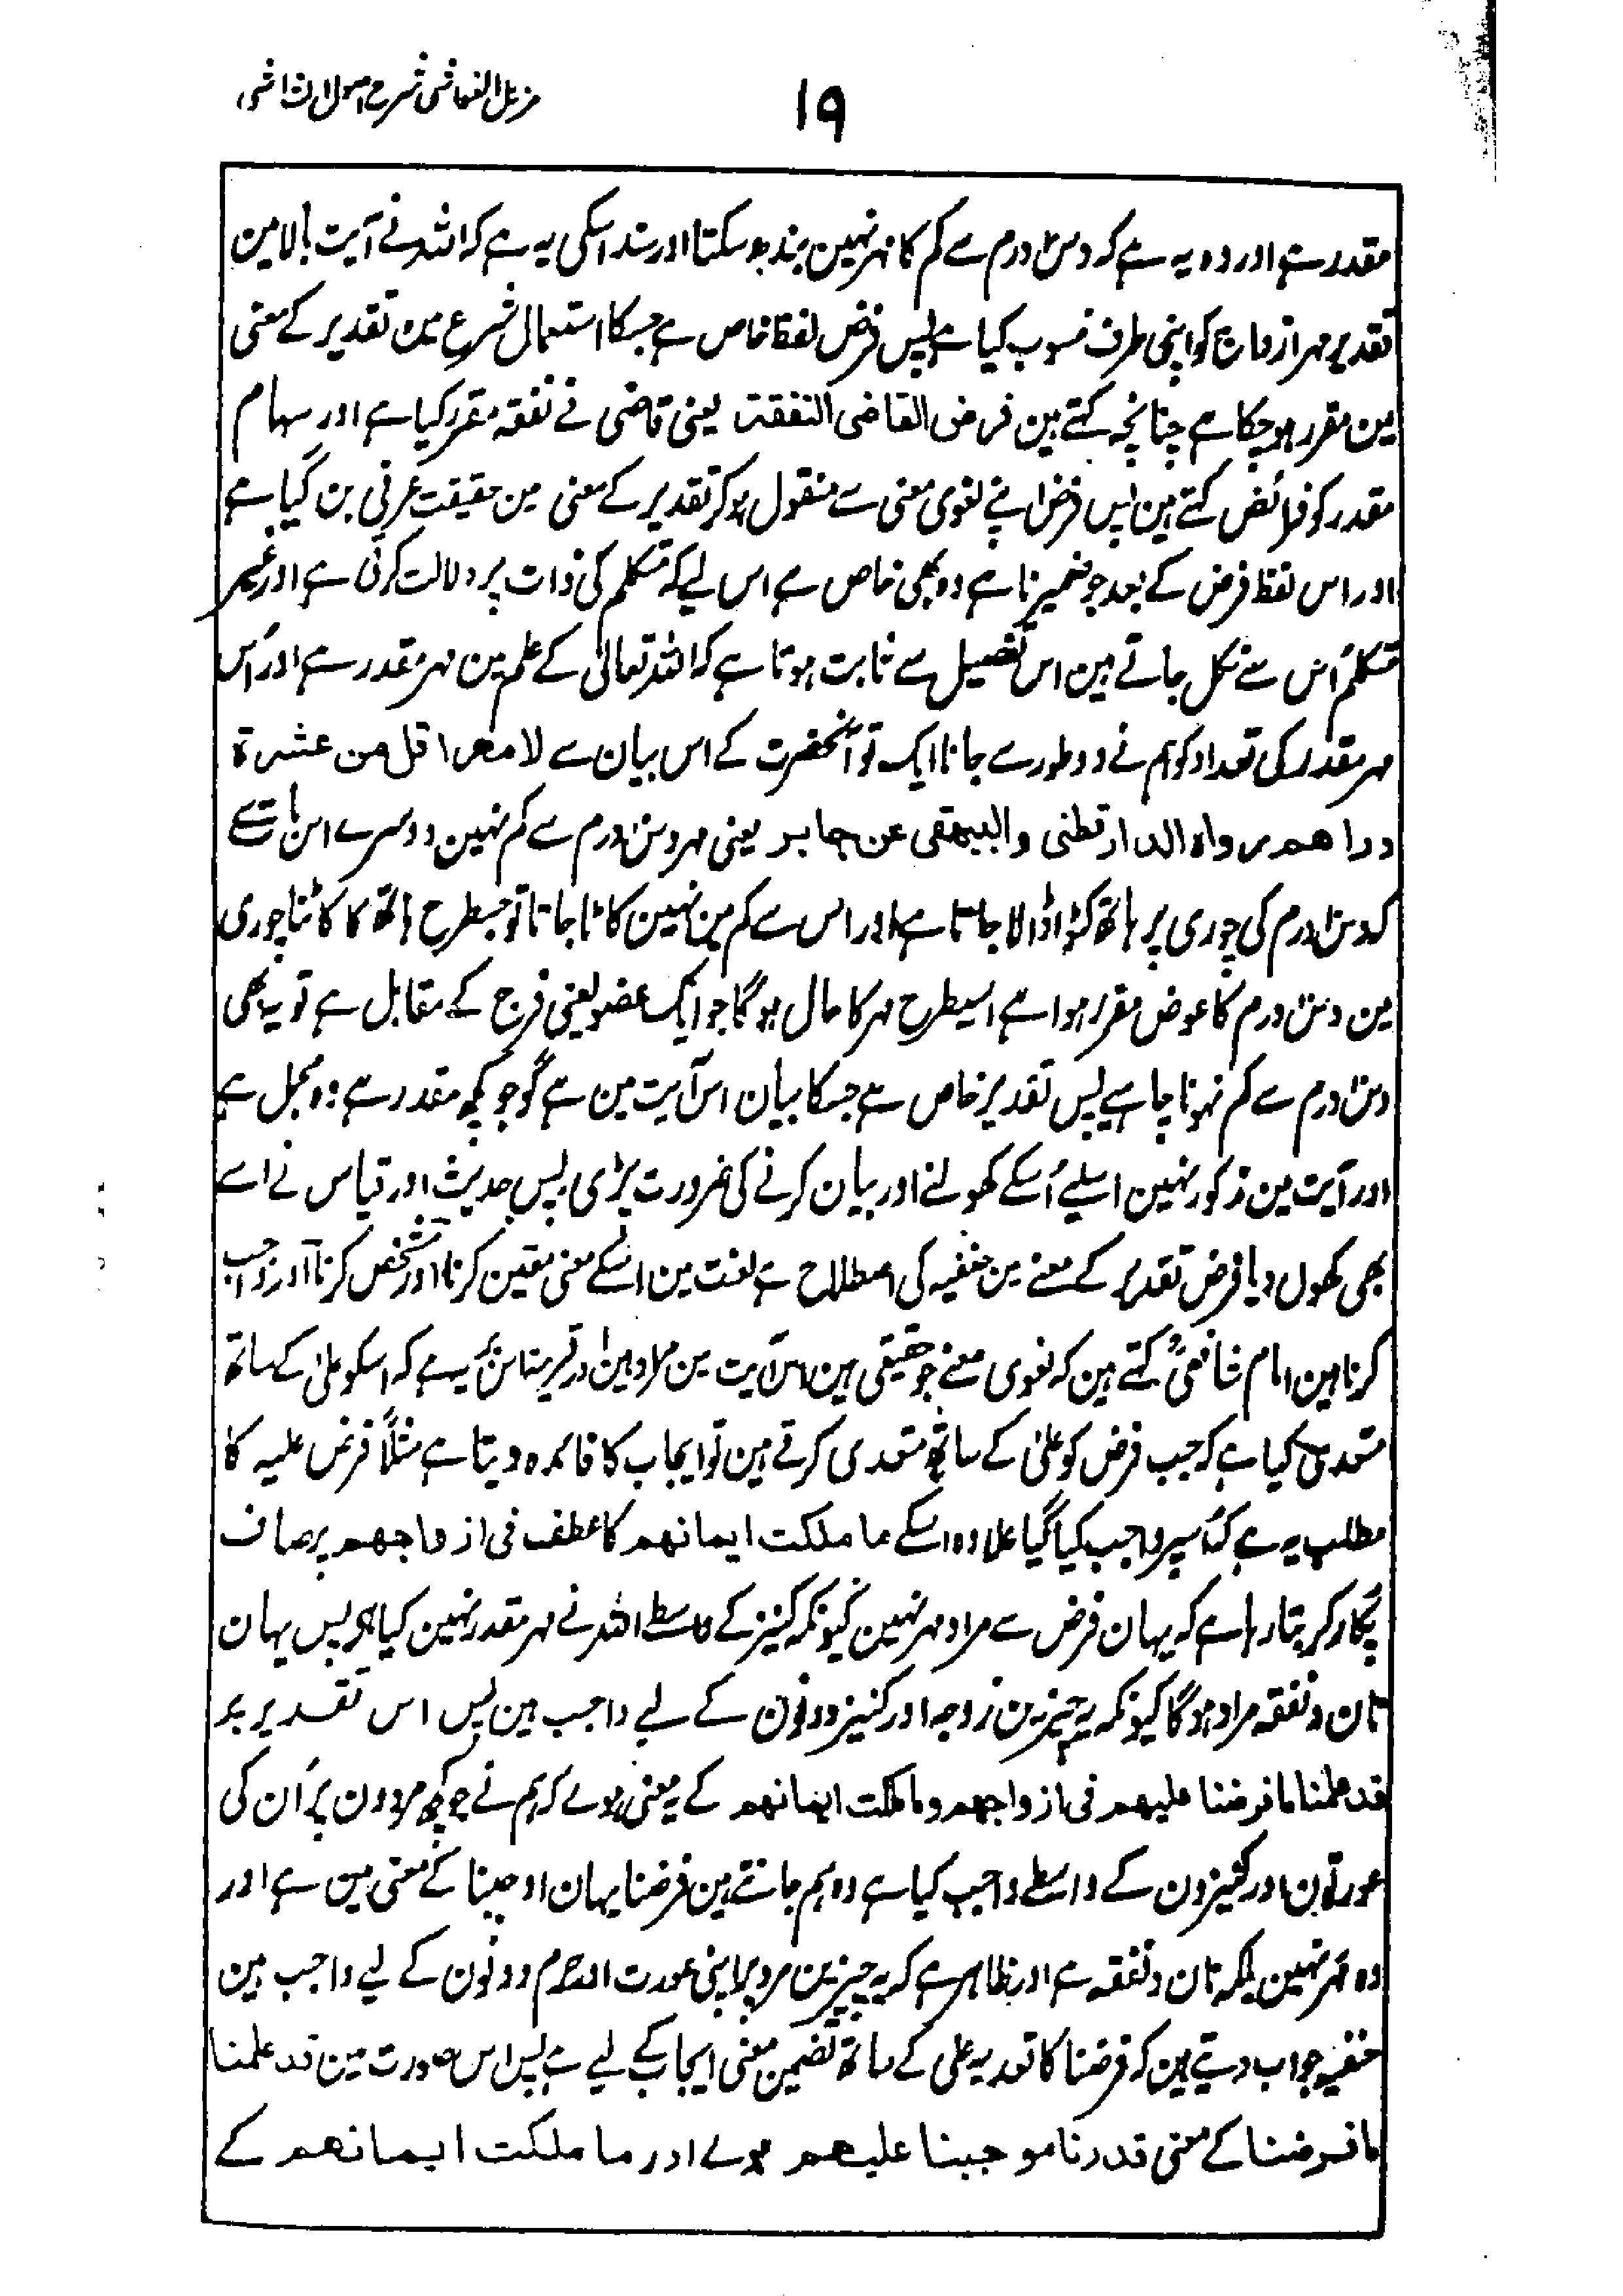 مزیل الغواشی شرح اصول الشاشی
۱۹
مقدر ہے اور وہ یہ ہے کہ دس درم سے کم کا مہر نہین بندہو سکتا اور سند اسکی یہ ہے کہ اللہ نے آیت بالا مین
تقدیر مہر ازواج کو اپنی طرف منسوب کیا ہے پس فرض لفظ خاص ہے جسکا استعمال شرع مین تقدیر کے معنی
مین مقرر ہو چکا ہے چنانچہ کہتے ہین فرض القاضی النفقۃ یعنی قاضی نے نفقہ مقرر کیا ہے اور سہام
مقدر کو فرائض کہتے ہین پس فرض اپنے لغوی معنی سے منقول ہو کر تقدیر کے معنی مین حقیقت عرفی بن گیا ہے
اور اس لفظ فرض کے بعد جو ضمیر نا ہے وہ بھی خاص ہے اس لیے کہ متکلم کی ذات پر دلالت کرتی ہے اور غیر
متکلم اُس سے نکل جاتے ہین اس تفصیل سے ثابت ہوتا ہے کہ اللہ تعالیٰ کے علم مین مہر مقدر ہے اور اُس
مہر مقدر کی تعداد کو ہم نے دو طور سے جانا ایک تو آنحضرت کے اس بیان سے لا مھر اقل من عشرۃ
دراھم رواہ الدارقطنی والبیھقی عن جابر یعنی مہر دس درم سے کم نہین دوسرے اس بات سے
کہ دس درم کی چوری پر ہاتھ کٹوا ڈالا جاتا ہے اور اس سے کم مین نہین کاٹا جاتا تو جسطرح ہاتھ کا کاٹنا چوری
مین دس درم کا عوض مقرر ہوا ہے اسیطرح مہر کا حال ہو گا جو ایک عضو یعنی فرج کے مقابل ہے تو یہ بھی
دس درم سے کم نہونا چاہیے پس تقدیر خاص ہے جسکا بیان اس آیت مین ہے گو جو کچھ مقدر ہے وہ مجمل ہے
اور آیت مین مذکور نہین اسلیے اُسکے کھولنے اور بیان کرنے کی ضرورت پڑی پس حدیث اور قیاس نے اسے
بھی کھول دیا فرض تقدیر کے معنے مین حنفیہ کی اصطلاح ہے لغت مین اسکے معنی معین کرنا اور مشخص کرنا اور واجب
کرنا ہین امام شافعیؒ کہتے ہین کہ لغوی معنے جو حقیقی ہین اس آیت مین مراد ہین اور قرینہ اس پر یہ ہے کہ اسکو علیٰ کے ساتھ
متعدی کیا ہے کہ جب فرض کو علیٰ کے ساتھ متعدی کرتے ہین تو ایجاب کا فائدہ دیتا ہے مثلاً فرض علیہ کا
مطلب یہ ہے کہ اُسپر واجب کیا گیا علاوہ اسکے ما ملکت ایمانھم کا عطف فی ازواجھم پر صاف
پکار کر بتا رہا ہے کہ یہان فرض سے مراد مہر نہین کیونکہ کنیز کے واسطے اللہ نے مہر مقدر نہین کیا ہے پس یہان
نان و نفقہ مراد ہو گا کیونکہ یہ چیزین زوجہ اور کنیز دونون کے لیے واجب ہین پس اس تقدیر پر
قد علمنا ما فرضنا علیھم فی ازواجھم و ما ملکت ایمانھم کے یہ معنی ہوے کہ ہم نے جو کچھ مردون پر اُن کی
عورتون اور کنیزون کے واسطے واجب کیا ہے وہ ہم جانتے ہین فرضنا یہان اوجبنا کے معنی مین ہے اور
وہ مہر نہین بلکہ نان و نفقہ ہے اور ظاہر ہے کہ یہ چیزین مرد پر اپنی عورت اور حرم دونون کے لیے واجب ہین
حنفیہ جواب دیتے ہین کہ فرضنا کا تعدیہ علی کے ساتھ تضمین معنی ایجاب کے لیے ہے پس اس صورت مین قد علمنا
ما فرضنا کے معنی قدرنا موجبنا علیھم ہوے اور ما ملکت ایمانھم کے